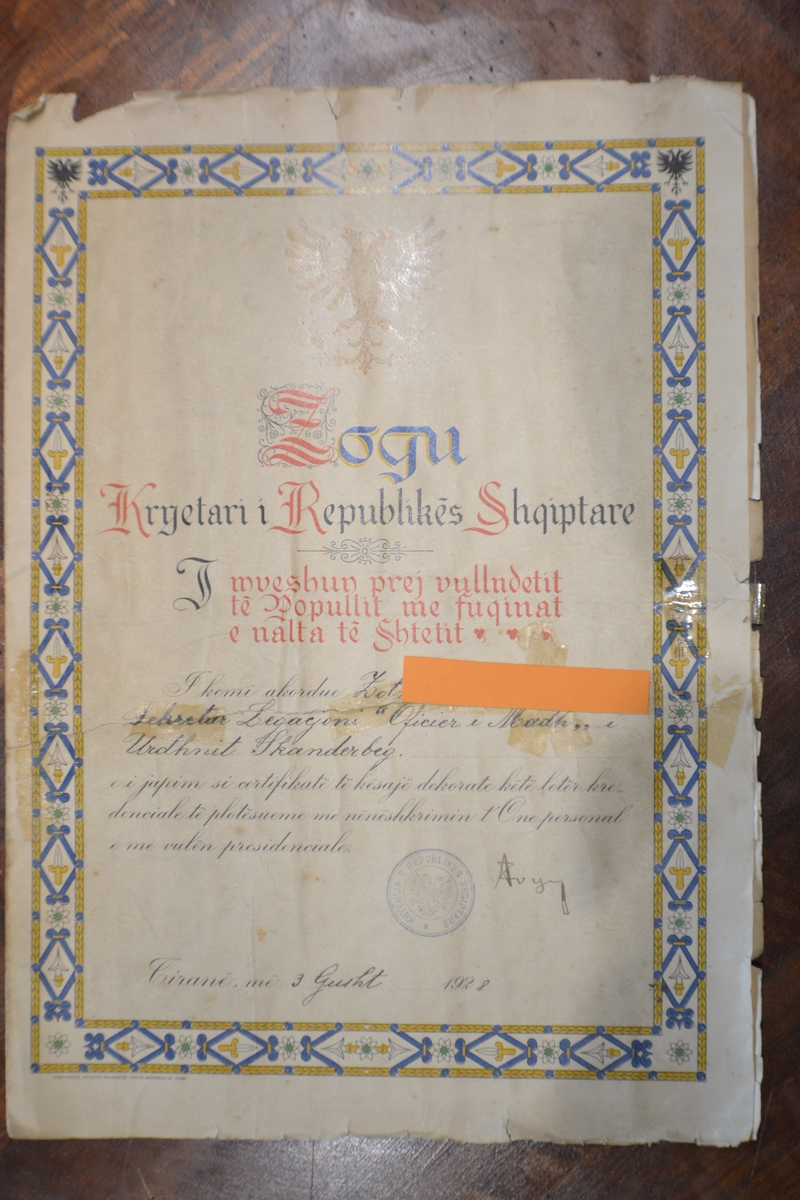 Zogu
Kryetari i Republikēs Shqiptare
I mveshun prej vullndetit
tē Popullit me fuqinat
e nalta tē Shtetit
I kemi akordue Zot.
Sekretar Legacjoni "Oficier i Madh„ i
Urdhnit Skanderbeg.
e i japim si certifikatë të kësajë dekorate këtë letër kre-
denciale të plotësueme me nënëshkrimin t'One personal
e me vulën presidenciale.
REPUBLIKËS SHQIPTARE
Tiranë, më 3 Gusht 1928